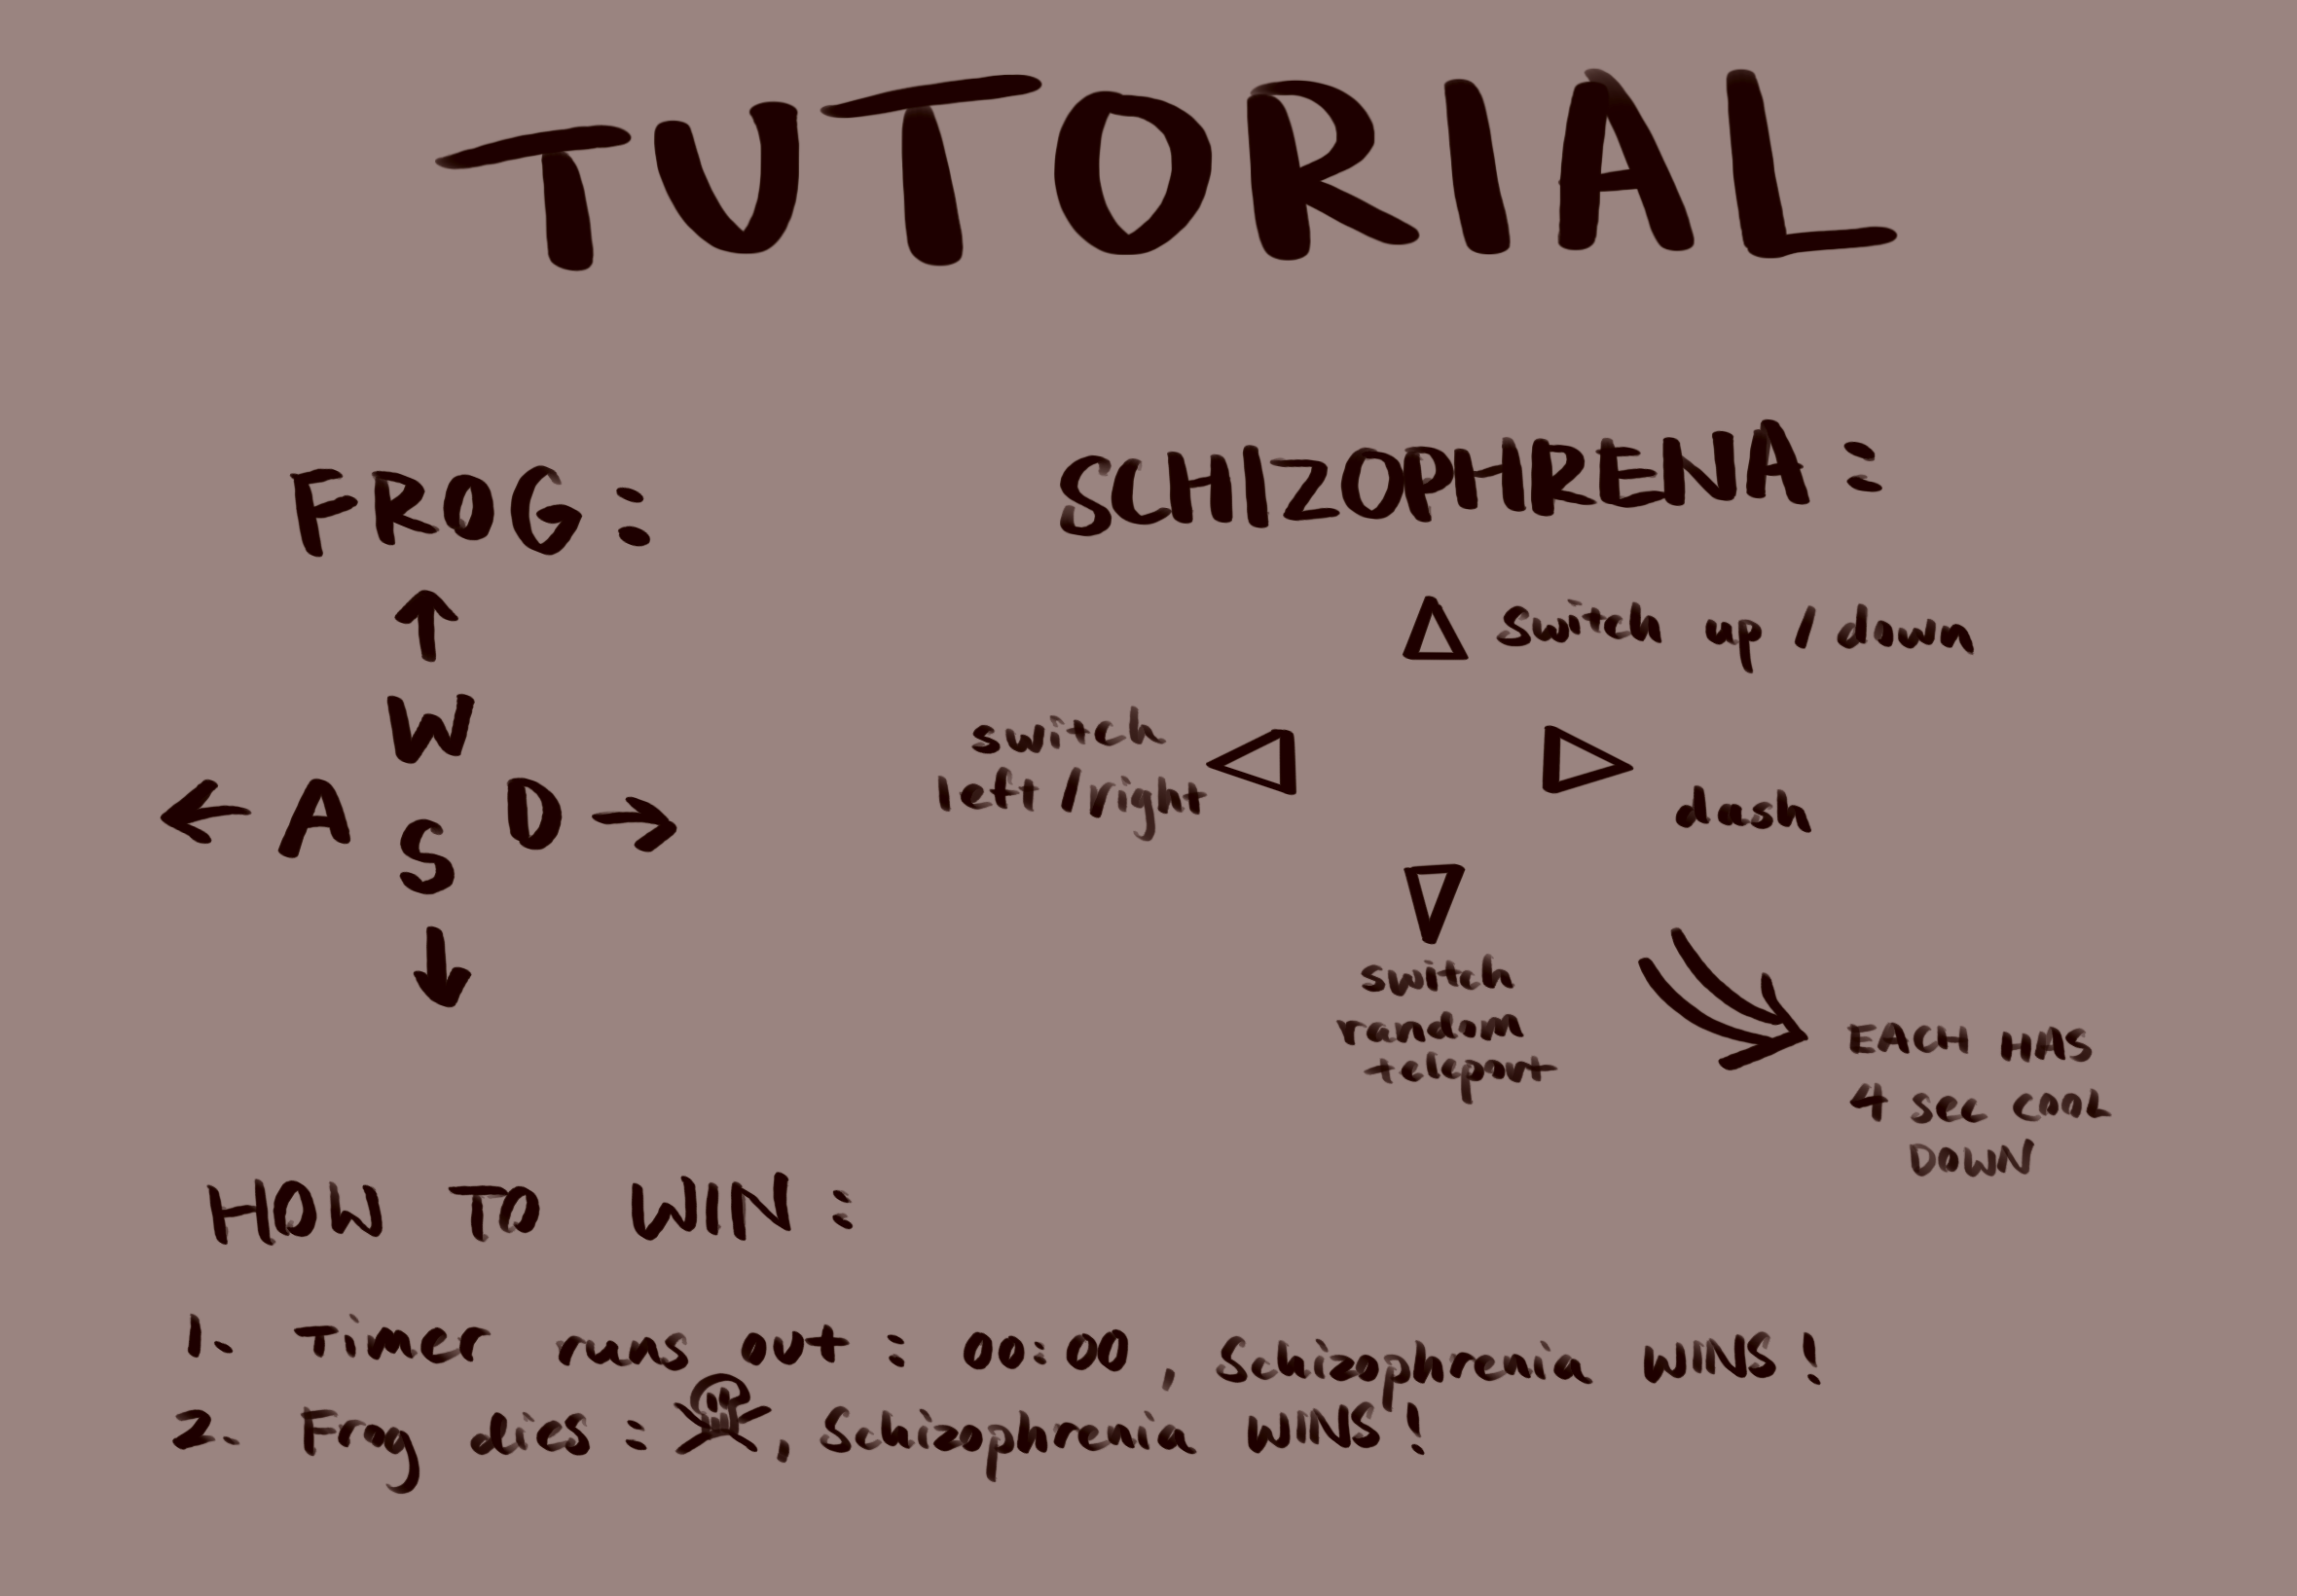 TUTORIAL
FROG:
W
A S D
SCHIZOPHRENA:
switch up / down
switch
left / right
dash
switch
random
teleport
EACH HAS
4 sec COOL
DOWN
HOW TO WIN:
1. Timer runs out: 00:00, Schizophrenia WINS!
2. Frog dies: , Schizophrenia WINS!